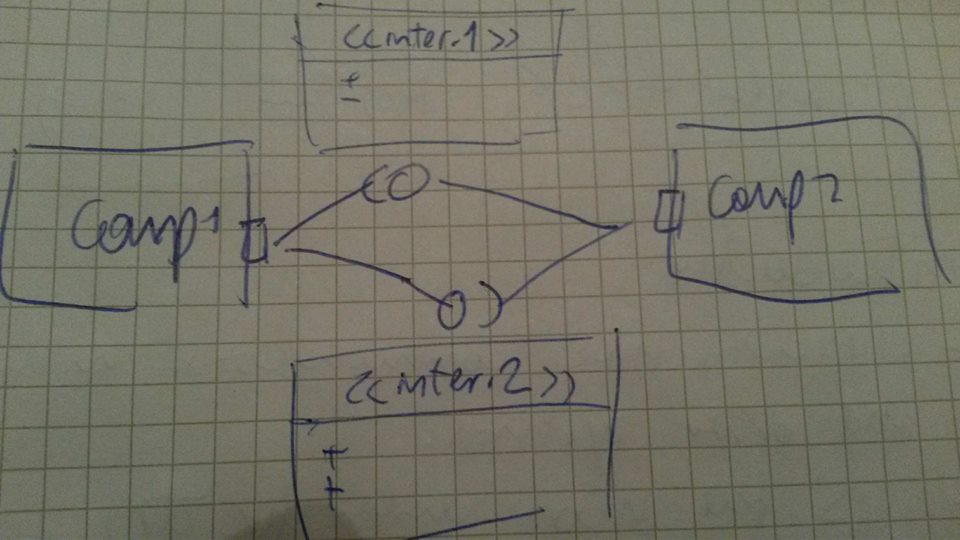 <<inter.1>>
+
-
Comp1
Comp2
<<inter.2>>
+
+